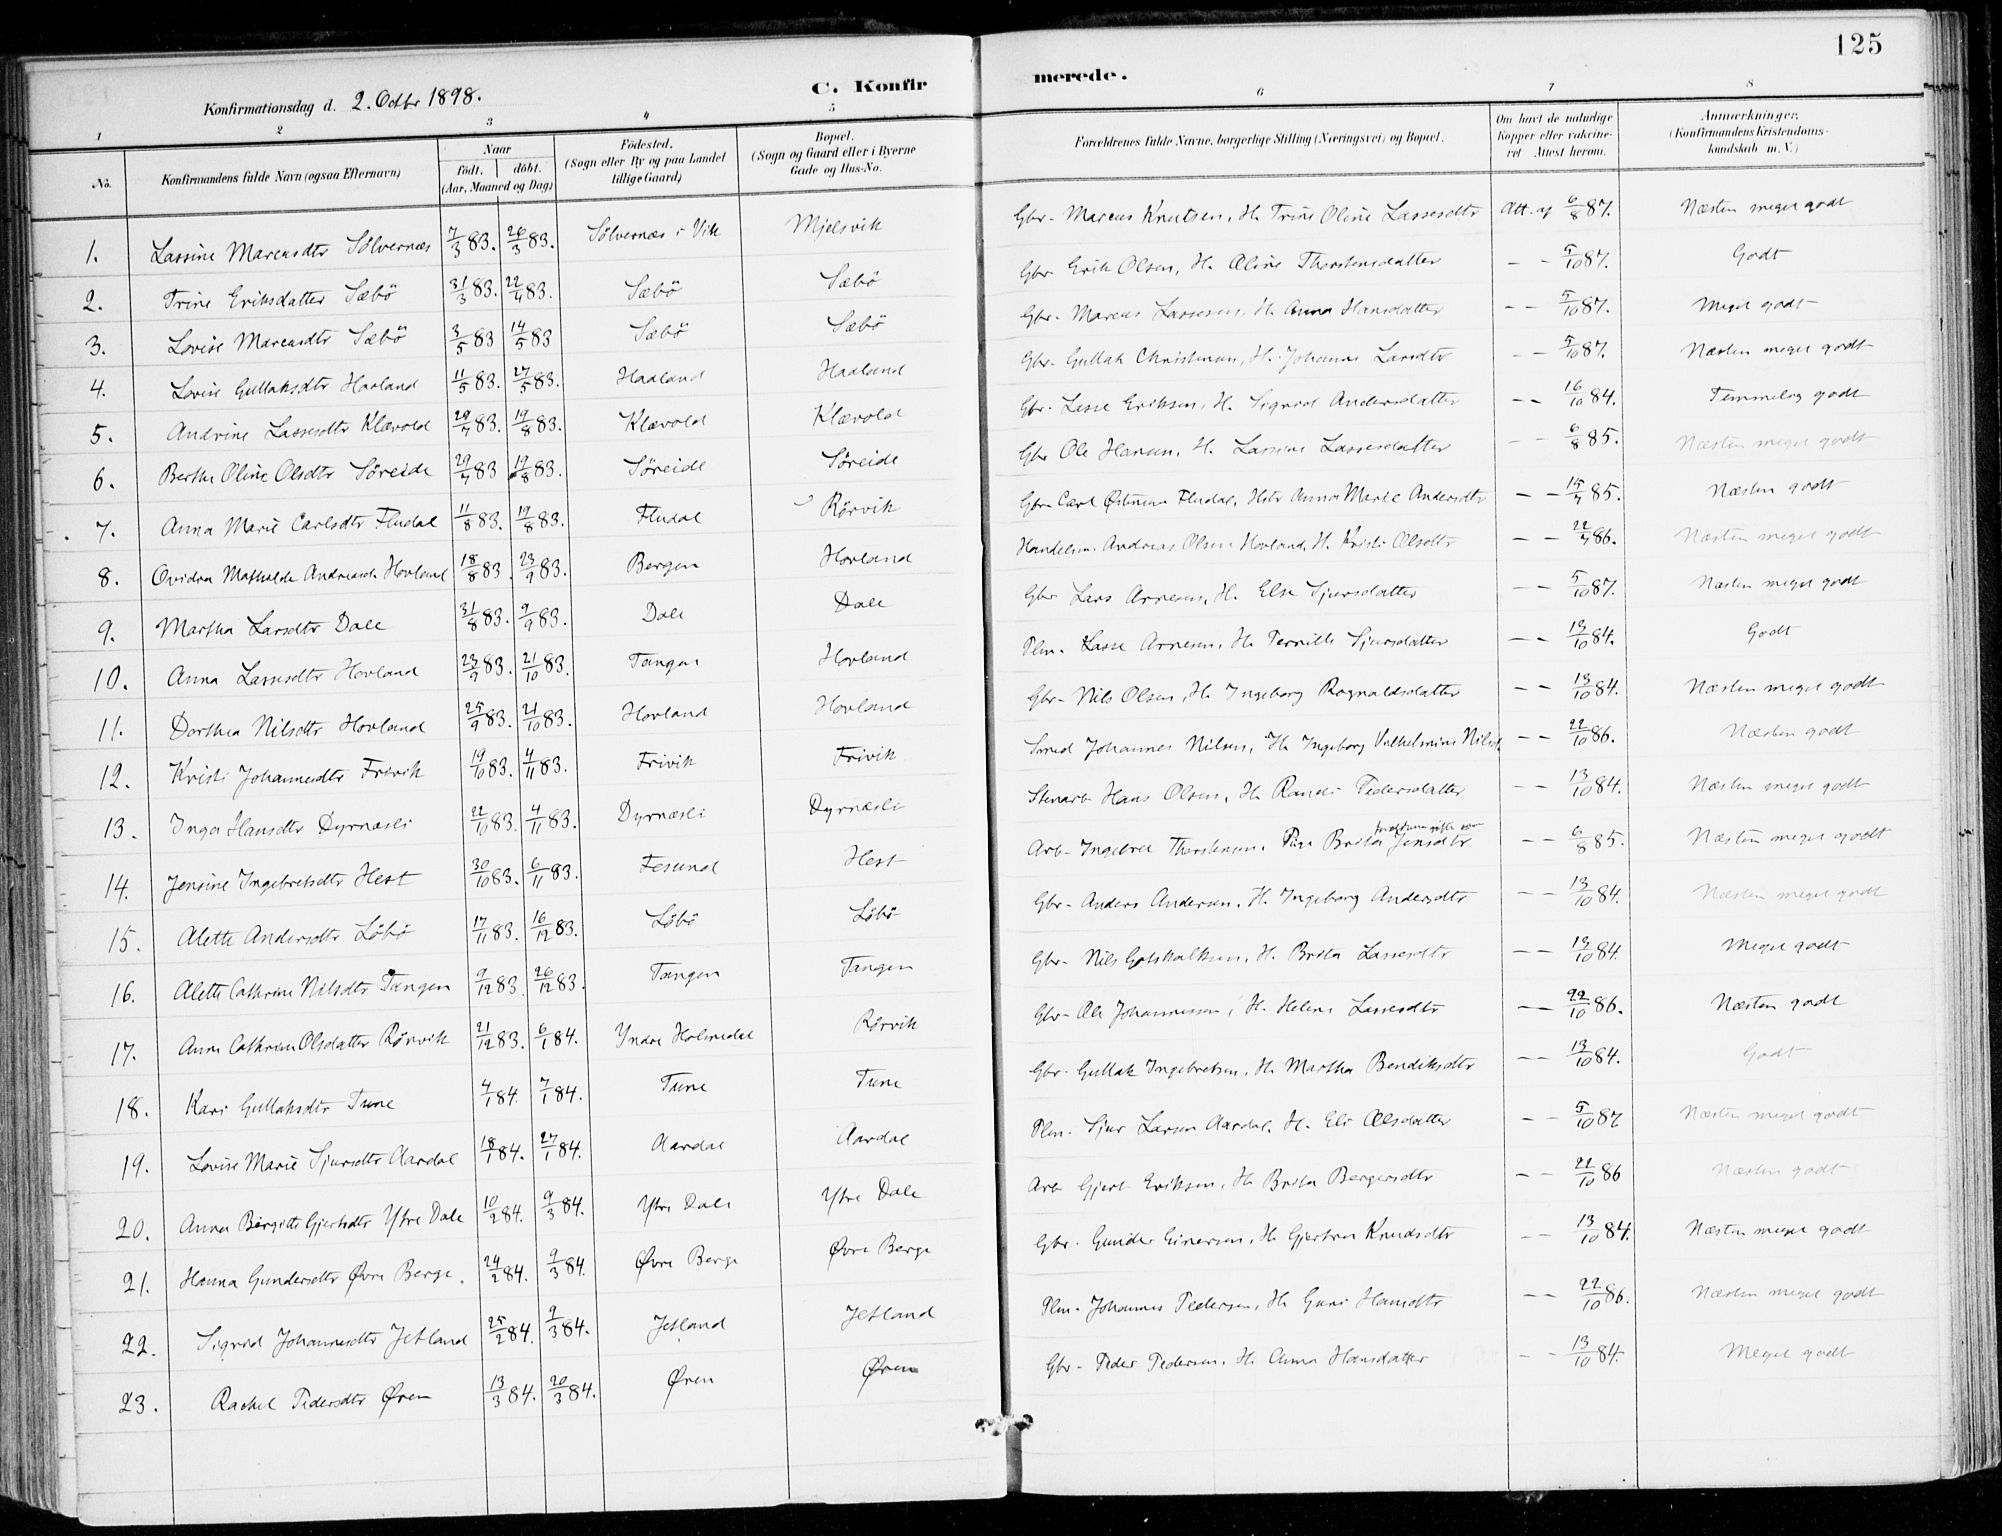 125
C. Konfirmerede.
Konfirmationsdag d. 2. Octbr 1898.
1 2 3 4 5 6 7 8
No. Konfirmandens fulde Navn (ogsaa Efternavn) Naar født. døbt. (Aar, Maaned og Dag) Fødested. (Sogn eller By og paa Landet tillige Gaard) Bopæl. (Sogn og Gaard eller i Byerne Gade og Hus-No. Forældrenes fulde Navne, borgerlige Stilling (Næringsvei) og Bopæl. Om havt de naturlige Kopper eller vakcineret. Attest herom. Anmærkninger. (Konfirmandens Kristendomskundskab m. V.)
1. Lassine Marcusdtr Sølvernæs 7/3 83. 26/3 83. Sølvernæs i Vik Mjelsvik Gbr. Marcus Knutsen, H. Trine Oline Lassesdtr Att. af 6/8 87. Næsten meget godt
2. Trine Eriksdatter Sæbö 31/3 83. 22/4 83. Sæbö Sæbö Gbr Erik Olsen, H. Oline Thorstensdatter – – 5/10 87. Godt
3. Lovise Marcusdtr Sæbö 3/5 83 14/5 83 Sæbö Sæbö Gbr. Marcus Lassesen, H. Anna Hansdatter – – 5/10 87. Meget godt
4. Lovise Gullaksdtr Havland 11/5 83. 27/5 83. Haaland Haaland Gbr. Gullak Christensen, H. Johanne Larsdtr – – 5/10 87. Næsten meget godt
5. Andrine Lassesdtr Klævold 29/7 83. 19/8 83. Klævold Klævold Gbr. Lasse Eriksen, H. Sigrid Andersdatter – – 16/10 84. Temmelig godt
6. Berthe Oline Olsdtr Søreide 29/7 83 19/8 83. Søreide Søreide Gbr Ole Hansen, H. Lassine Lassesdatter – – 6/8 85. Næsten meget godt
7. Anna Marie Carlsdtr Fludal 11/8 83. 19/8 83. Fludal Rørvik Gbr. Carl Østensen Fludal, Hstr Anna Marie Andersdtr – – 15/7 85. Næsten godt
8. Ovidra Mathilde Andreasd. Hovland 18/8 83. 23/9 83. Bergen Hovland Handelsm. Andreas Olsen Hovland, H. Kristi Olsdtr – – 22/7 86. Næsten meget godt
9. Martha Larsdtr Dale 31/8 83. 9/9 83. Dale Dale Gbr Lars Arnesen, H. Else Sjursdatter – – 5/10 87. Næsten meget godt
10. Anna Lassesdtr Hovland 23/9 83. 21/10 83. Tangen Hovland Plm. Lasse Arnesen, H. Pernille Sjursdatter – – 13/10 84. Godt
11. Dorthea Nilsdtr Hovland 25/9 83. 21/10 83. Hovland Hovland Gbr. Nils Olsen, H. Ingeborg Rognaldsdatter – – 13/10 84. Næsten meget godt
12. Kristi Johannesdtr Frivik 19/10 83. 4/11 83. Frivik Frivik Smed Johannes Nilsen, H. Ingeborg Vilhelmine Nilsd. – – 22/10 86. Næsten godt
13. Inga Hansdtr Dyrnæsli 22/10 83. 4/11 83. Dyrnæsli Dyrnæsli Stenarb Hans Olsen, H. Randi Pedersdatter – – 13/10 84. Næsten meget godt
14. Jensine Ingebretsdtr Hest 30/10 83. 6/11 83. Fesund Hest Arb. Ingebret Thorstensen, Pige Brita Jensdtr – – 6/8 85. Næsten meget godt
15. Alette Andersdtr Løbö 17/11 83. 16/12 83. Løbö Løbö Gbr. Anders Andersen, H. Ingeborg Andersdtr – – 13/10 84. Næsten meget godt
16. Alette Cathrine Nilsdtr Tangen 9/12 83. 26/12 83. Tangen Tangen Gbr. Nils Gotskalksen, H. Brita Lassesdtr – – 13/10 84. Meget godt
17. Anne Cathrine Olsdatter Rørvik 21/12 83. 6/1 84. Yndre Holmedal Rørvik Gbr. Ole Johannessen, H. Helene Lassesdtr – – 22/10 86. Næsten godt
18. Kari Gullaksdtr Tune 4/1 84. 7/1 84. Tune Tune Gbr. Gullak Ingebretsen, H. Martha Bendiksdtr – – 13/10 84. Godt
19. Lovise Marie Sjursdtr Aardal 18/1 84. 27/1 84. Aardal Aardal Plm. Sjur Larsen Aardal, H. Eli Olsdatter – – 5/10 87 Næsten meget godt
20. Anna Birgitte Gjertsdtr Ytre Dale 10/2 84. 9/3 84. Ytre Dale Ytre Dale Arb Gjert Eriksen, H. Brita Bergersdtr – – 22/10 86 Næsten godt
21. Hanna Gundersdtr Øvre Berge 24/2 84. 9/3 84. Øvre Berge Øvre Berge Gbr. Gunder Einersen, H. Gjertrud Knudsdtr – – 13/10 84. Næsten meget godt
22. Sigrid Johannesdtr Jetland 25/2 84. 9/3 84. Jetland Jetland Plm. Johannes Pedersen, H. Guri Hansdtr – – 22/10 86. Næsten meget godt
23. Rachel Pedersdtr Øren 13/3 84. 20/3 84. Øren Øren Gbr. Peder Pedersen, H. Anna Hansdatter – – 13/10 84. Meget godt